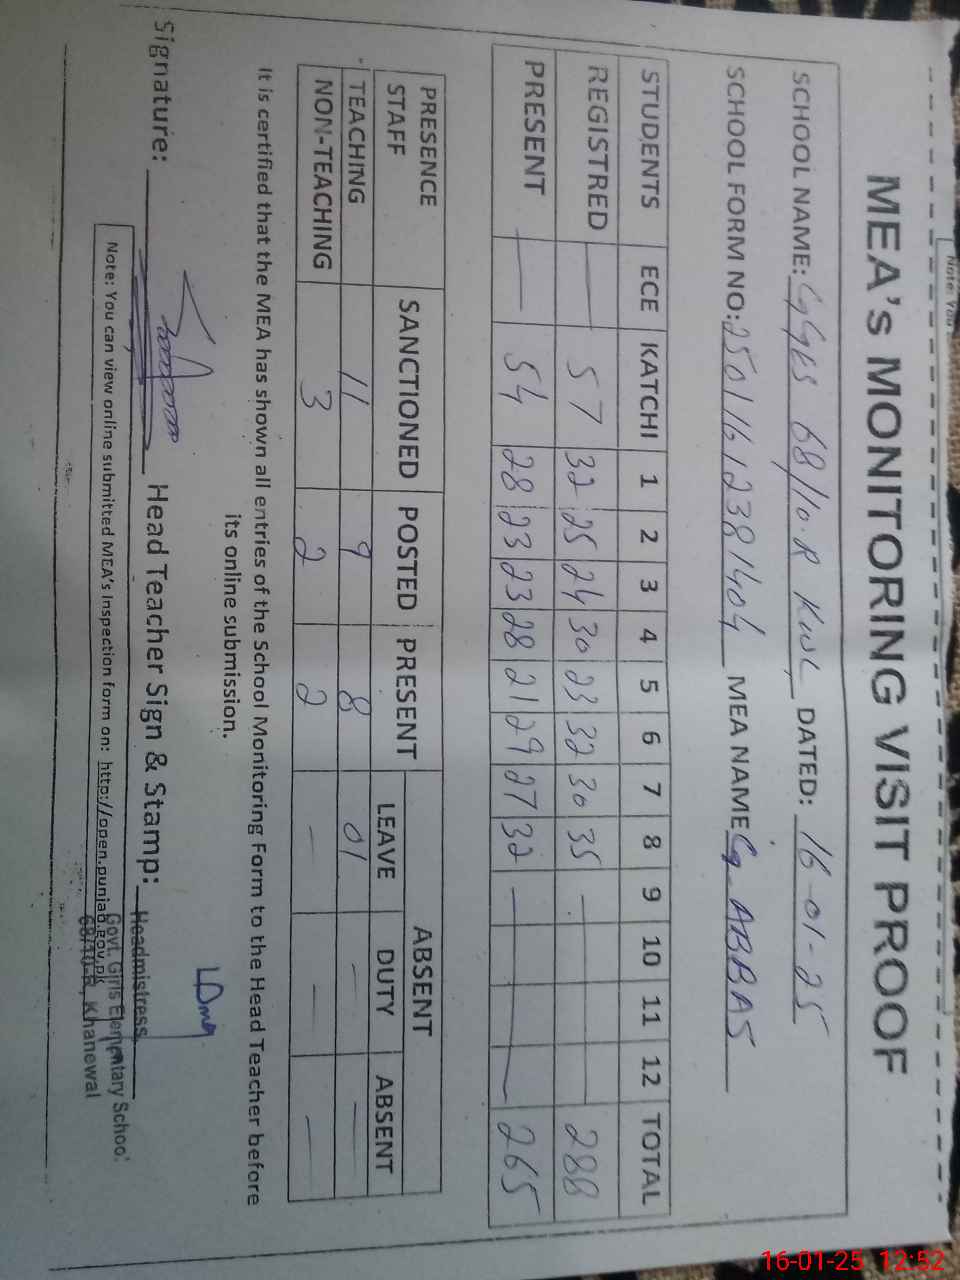 Note: You
MEA's MONITORING VISIT PROOF
SCHOOL NAME: GGES 68/10.R KWL DATED: 16-01-25
SCHOOL FORM NO: 25011612381404 MEA NAME G ABBAS
STUDENTS ECE KATCHI 1 2 3 4 5 6 7 8 9 10 11 12 TOTAL
REGISTRED — 57 32 25 24 30 23 32 30 35 — 288
PRESENT — 54 28 23 23 28 21 29 27 32 — 265
PRESENCE STAFF SANCTIONED POSTED PRESENT ABSENT
LEAVE DUTY ABSENT
TEACHING 11 9 8 01 — —
NON-TEACHING 3 2 2 — — —
It is certified that the MEA has shown all entries of the School Monitoring Form to the Head Teacher before
its online submission.
Signature: Head Teacher Sign & Stamp:
Headmistress
Govt. Girls Elementary School
68/10-R, Khanewal
Note: You can view online submitted MEA's Inspection form on: http://open.punjab.gov.pk
16-01-25 12:52